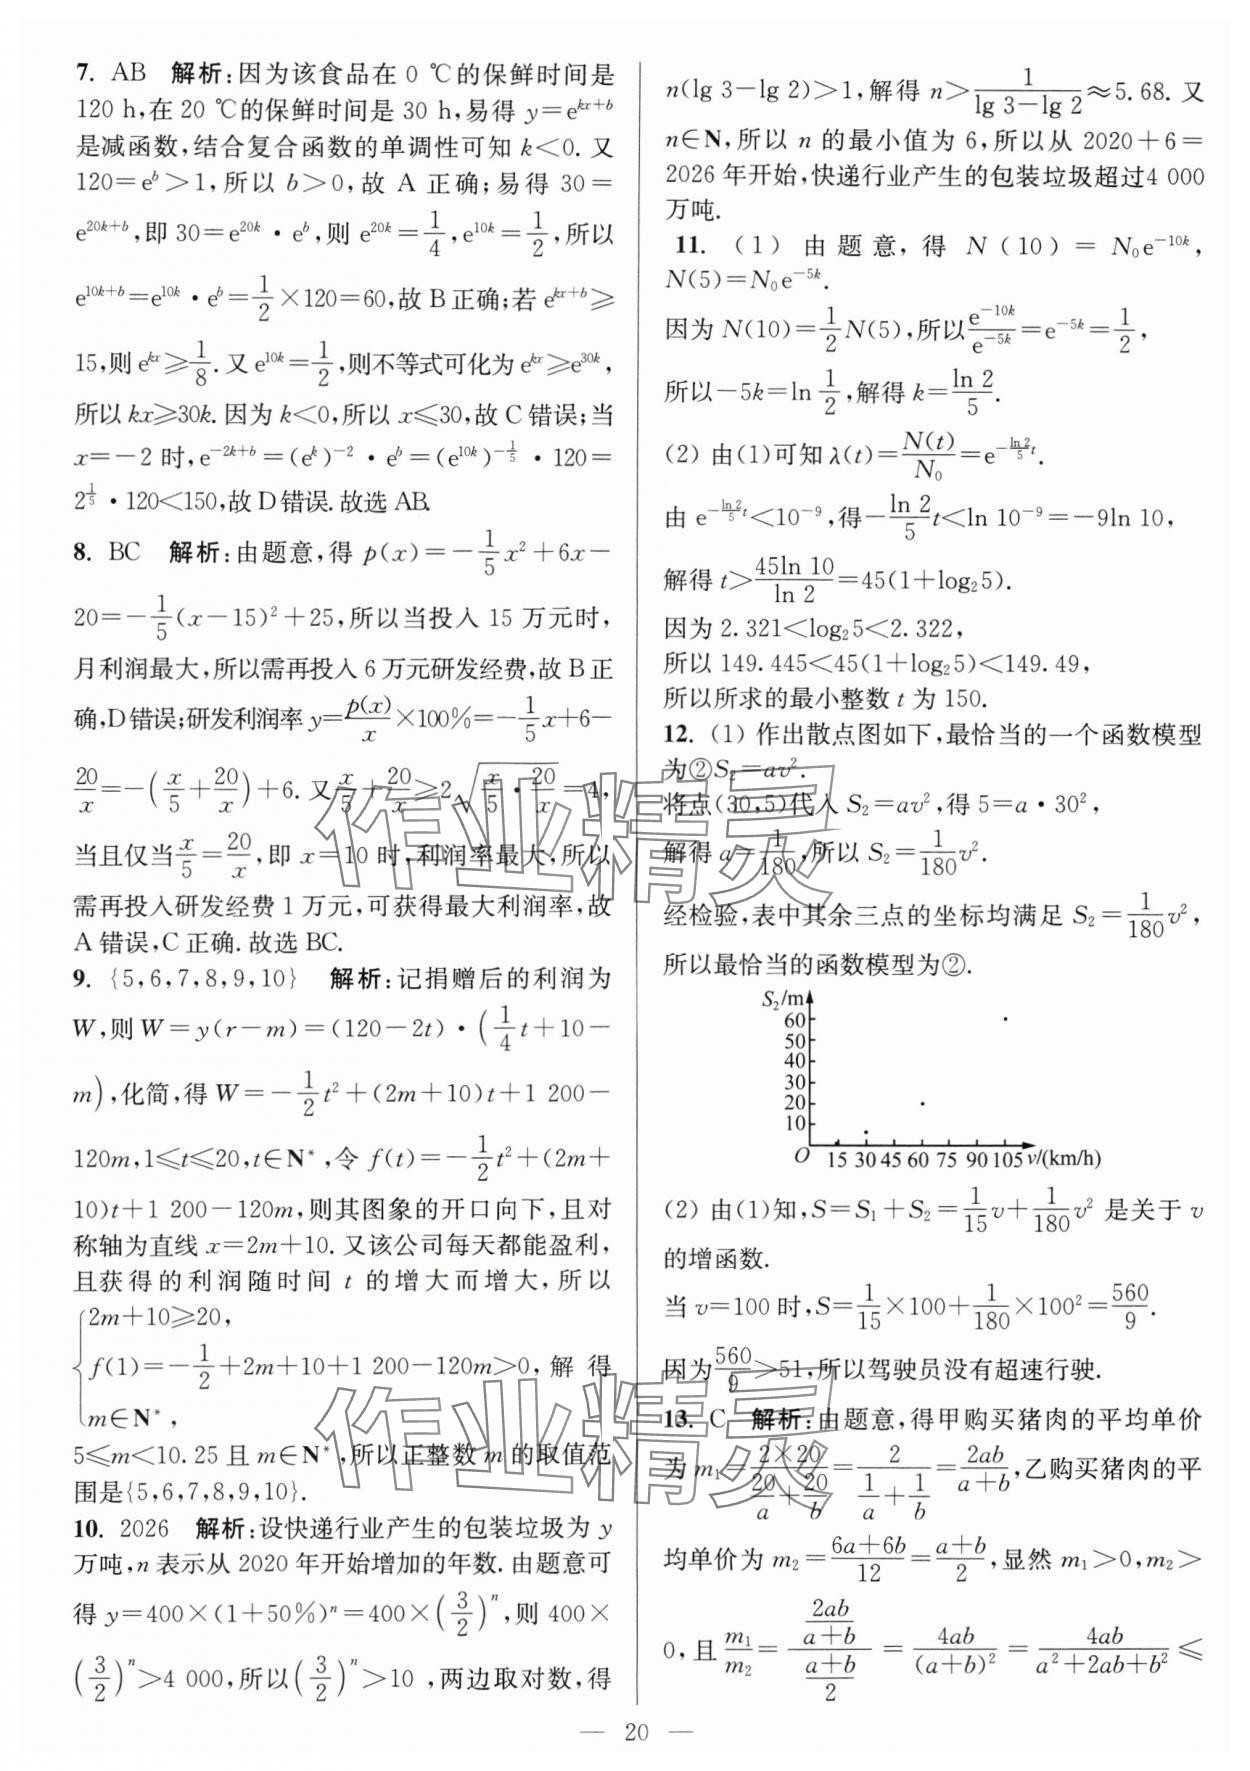 7. AB 解析:因为该食品在 0 ℃的保鲜时间是
120 h,在 20 ℃的保鲜时间是 30 h,易得 y=e^{kx+b}
是减函数,结合复合函数的单调性可知 k<0. 又
120=e^b>1,所以 b>0,故 A 正确;易得 30=
e^{20k+b},即 30=e^{20k}·e^b,则 e^{20k}=1/4,e^{10k}=1/2,所以
e^{10k+b}=e^{10k}·e^b=1/2×120=60,故 B 正确;若 e^{kx+b}≥
15,则 e^{kx}≥1/8. 又 e^{10k}=1/2,则不等式可化为 e^{kx}≥e^{30k},
所以 kx≥30k. 因为 k<0,所以 x≤30,故 C 错误;当
x=-2 时,e^{-2k+b}=(e^k)^{-2}·e^b=(e^{10k})^{-1/5}·120=
2^{1/5}·120<150,故 D 错误. 故选 AB.
8. BC 解析:由题意,得 p(x)=-1/5x²+6x-
20=-1/5(x-15)²+25,所以当投入 15 万元时,
月利润最大,所以需再投入 6 万元研发经费,故 B 正
确,D 错误;研发利润率 y=p(x)/x×100%=-1/5x+6-
20/x=-(x/5+20/x)+6. 又 x/5+20/x≥2√(x/5·20/x)=4,
当且仅当 x/5=20/x,即 x=10 时,利润率最大,所以
需再投入研发经费 1 万元,可获得最大利润率,故
A 错误,C 正确. 故选 BC.
9. {5,6,7,8,9,10} 解析:记捐赠后的利润为
W,则 W=y(r-m)=(120-2t)·(1/4t+10-
m),化简,得 W=-1/2t²+(2m+10)t+1 200-
120m,1≤t≤20,t∈N*,令 f(t)=-1/2t²+(2m+
10)t+1 200-120m,则其图象的开口向下,且对
称轴为直线 x=2m+10. 又该公司每天都能盈利,
且获得的利润随时间 t 的增大而增大,所以
{2m+10≥20,
f(1)=-1/2+2m+10+1 200-120m>0,解得
m∈N*,
5≤m<10.25 且 m∈N*,所以正整数 m 的取值范
围是{5,6,7,8,9,10}.
10. 2026 解析:设快递行业产生的包装垃圾为 y
万吨,n 表示从 2020 年开始增加的年数. 由题意可
得 y=400×(1+50%)^n=400×(3/2)^n,则 400×
(3/2)^n>4 000,所以(3/2)^n>10,两边取对数,得
n(lg 3-lg 2)>1,解得 n>1/(lg 3-lg 2)≈5.68. 又
n∈N,所以 n 的最小值为 6,所以从 2020+6=
2026 年开始,快递行业产生的包装垃圾超过4 000
万吨.
11. (1) 由题意,得 N(10)=N₀e^{-10k},
N(5)=N₀e^{-5k}.
因为 N(10)=1/2N(5),所以 e^{-10k}/e^{-5k}=e^{-5k}=1/2,
所以-5k=ln 1/2,解得 k=ln 2/5.
(2) 由(1)可知 λ(t)=N(t)/N₀=e^{-(ln 2/5)t}.
由 e^{-(ln 2/5)t}<10^{-9},得-ln 2/5 t<ln 10^{-9}=-9ln 10,
解得 t>45ln 10/ln 2=45(1+log₂5).
因为 2.321<log₂5<2.322,
所以 149.445<45(1+log₂5)<149.49,
所以所求的最小整数 t 为 150.
12. (1) 作出散点图如下,最恰当的一个函数模型
为②S₂=av².
将点(30,5)代入 S₂=av²,得 5=a·30²,
解得 a=1/180,所以 S₂=1/180v².
经检验,表中其余三点的坐标均满足 S₂=1/180v²,
所以最恰当的函数模型为②.
S₂/m
60
50
40
30
20
10
O 15 30 45 60 75 90 105 v/(km/h)
(2) 由(1)知,S=S₁+S₂=1/15v+1/180v² 是关于 v
的增函数.
当 v=100 时,S=1/15×100+1/180×100²=560/9.
因为 560/9>51,所以驾驶员没有超速行驶.
13. C 解析:由题意,得甲购买猪肉的平均单价
为 m₁=(2×20)/(20/a+20/b)=2/(1/a+1/b)=2ab/(a+b),乙购买猪肉的平
均单价为 m₂=(6a+6b)/12=(a+b)/2,显然 m₁>0,m₂>
0,且 m₁/m₂=(2ab/(a+b))/((a+b)/2)=4ab/(a+b)²=4ab/(a²+2ab+b²)≤
— 20 —
作业精灵
作业精灵